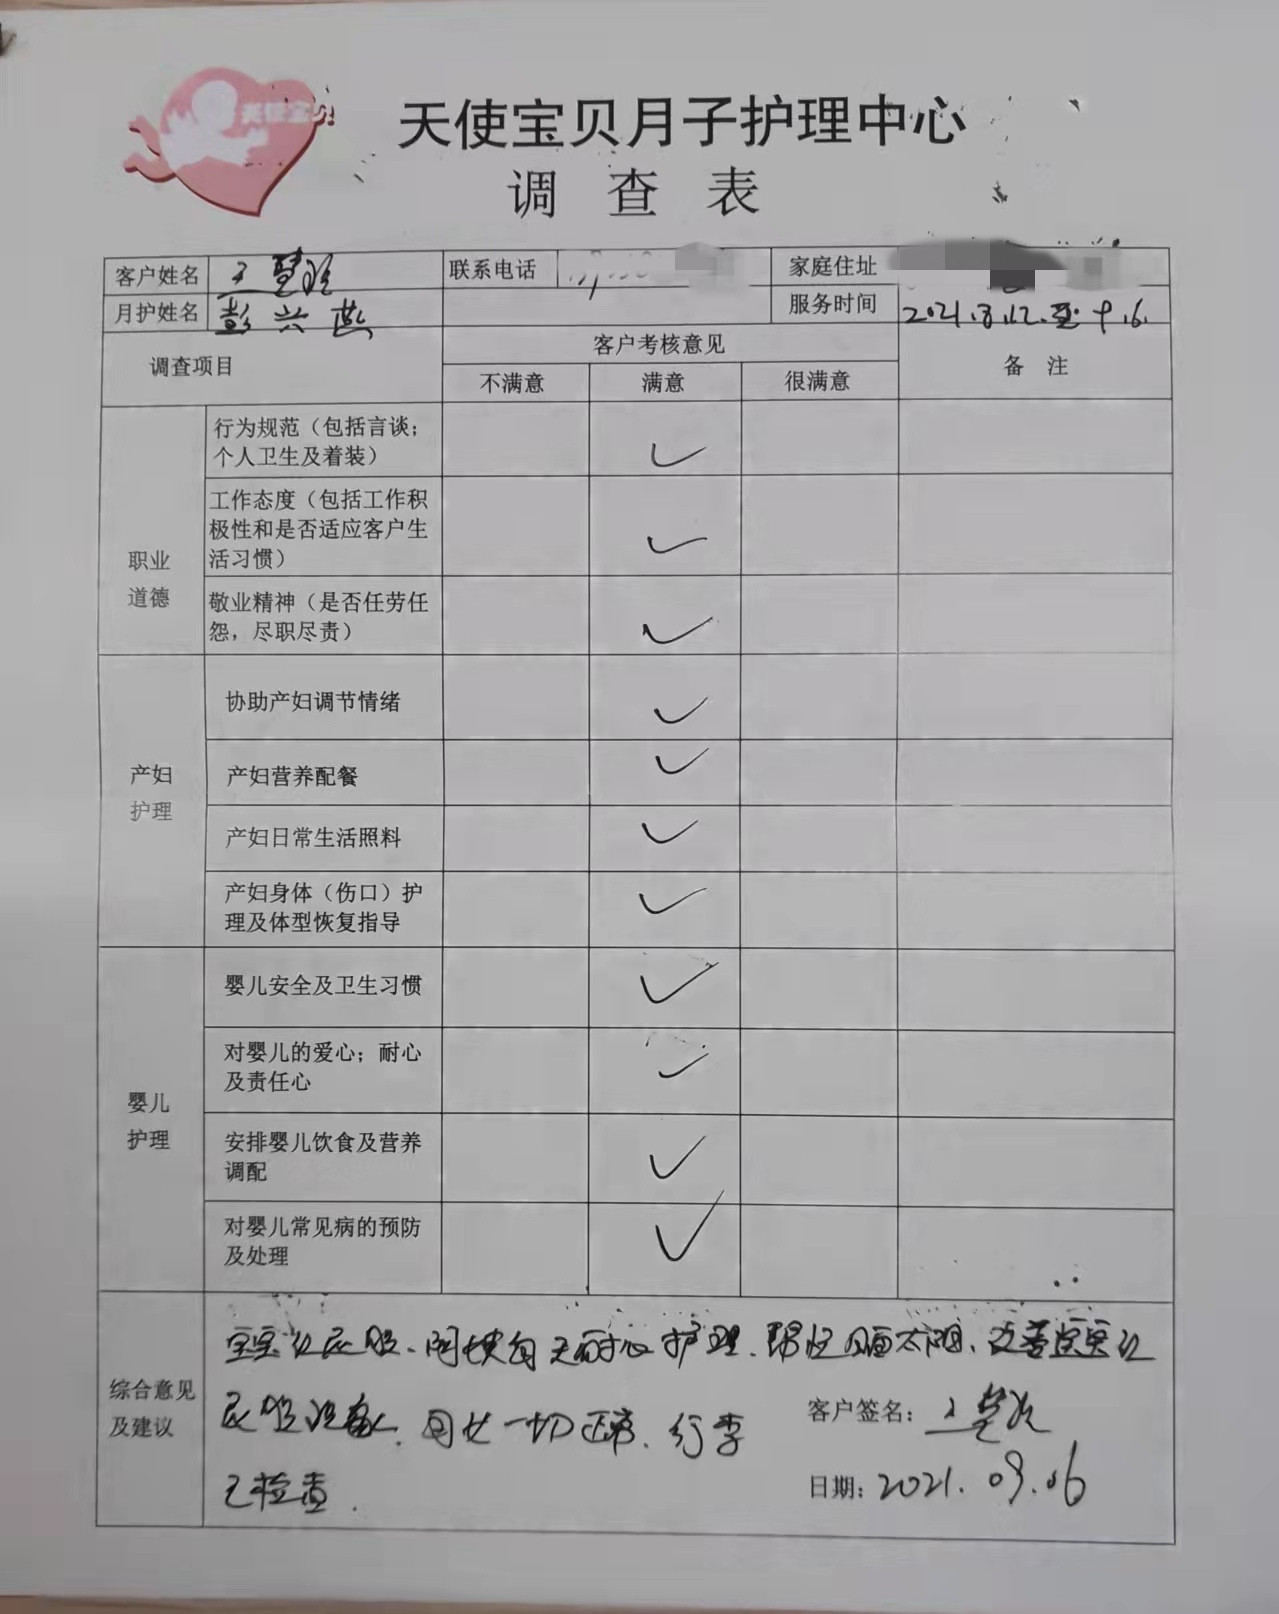 天使宝贝
天使宝贝月子护理中心
调 查 表
客户姓名 王慧玲 联系电话 家庭住址
月护姓名 彭兴燕 服务时间 2021.8.12.至 9.6.
调查项目 客户考核意见 备 注
不满意 满意 很满意
职业
道德
行为规范（包括言谈；
个人卫生及着装） ✓
工作态度（包括工作积
极性和是否适应客户生
活习惯） ✓
敬业精神（是否任劳任
怨，尽职尽责） ✓
产妇
护理
协助产妇调节情绪 ✓
产妇营养配餐 ✓
产妇日常生活照料 ✓
产妇身体（伤口）护
理及体型恢复指导 ✓
婴儿
护理
婴儿安全及卫生习惯 ✓
对婴儿的爱心；耐心
及责任心 ✓
安排婴儿饮食及营养
调配 ✓
对婴儿常见病的预防
及处理 ✓
综合意见
及建议
宝宝红尿股、阿姨每天耐心护理、帮忙晒太阳、改善宝宝红
尿股、一切正常、行李
已检查.
客户签名：王慧玲
日期：2021.09.06